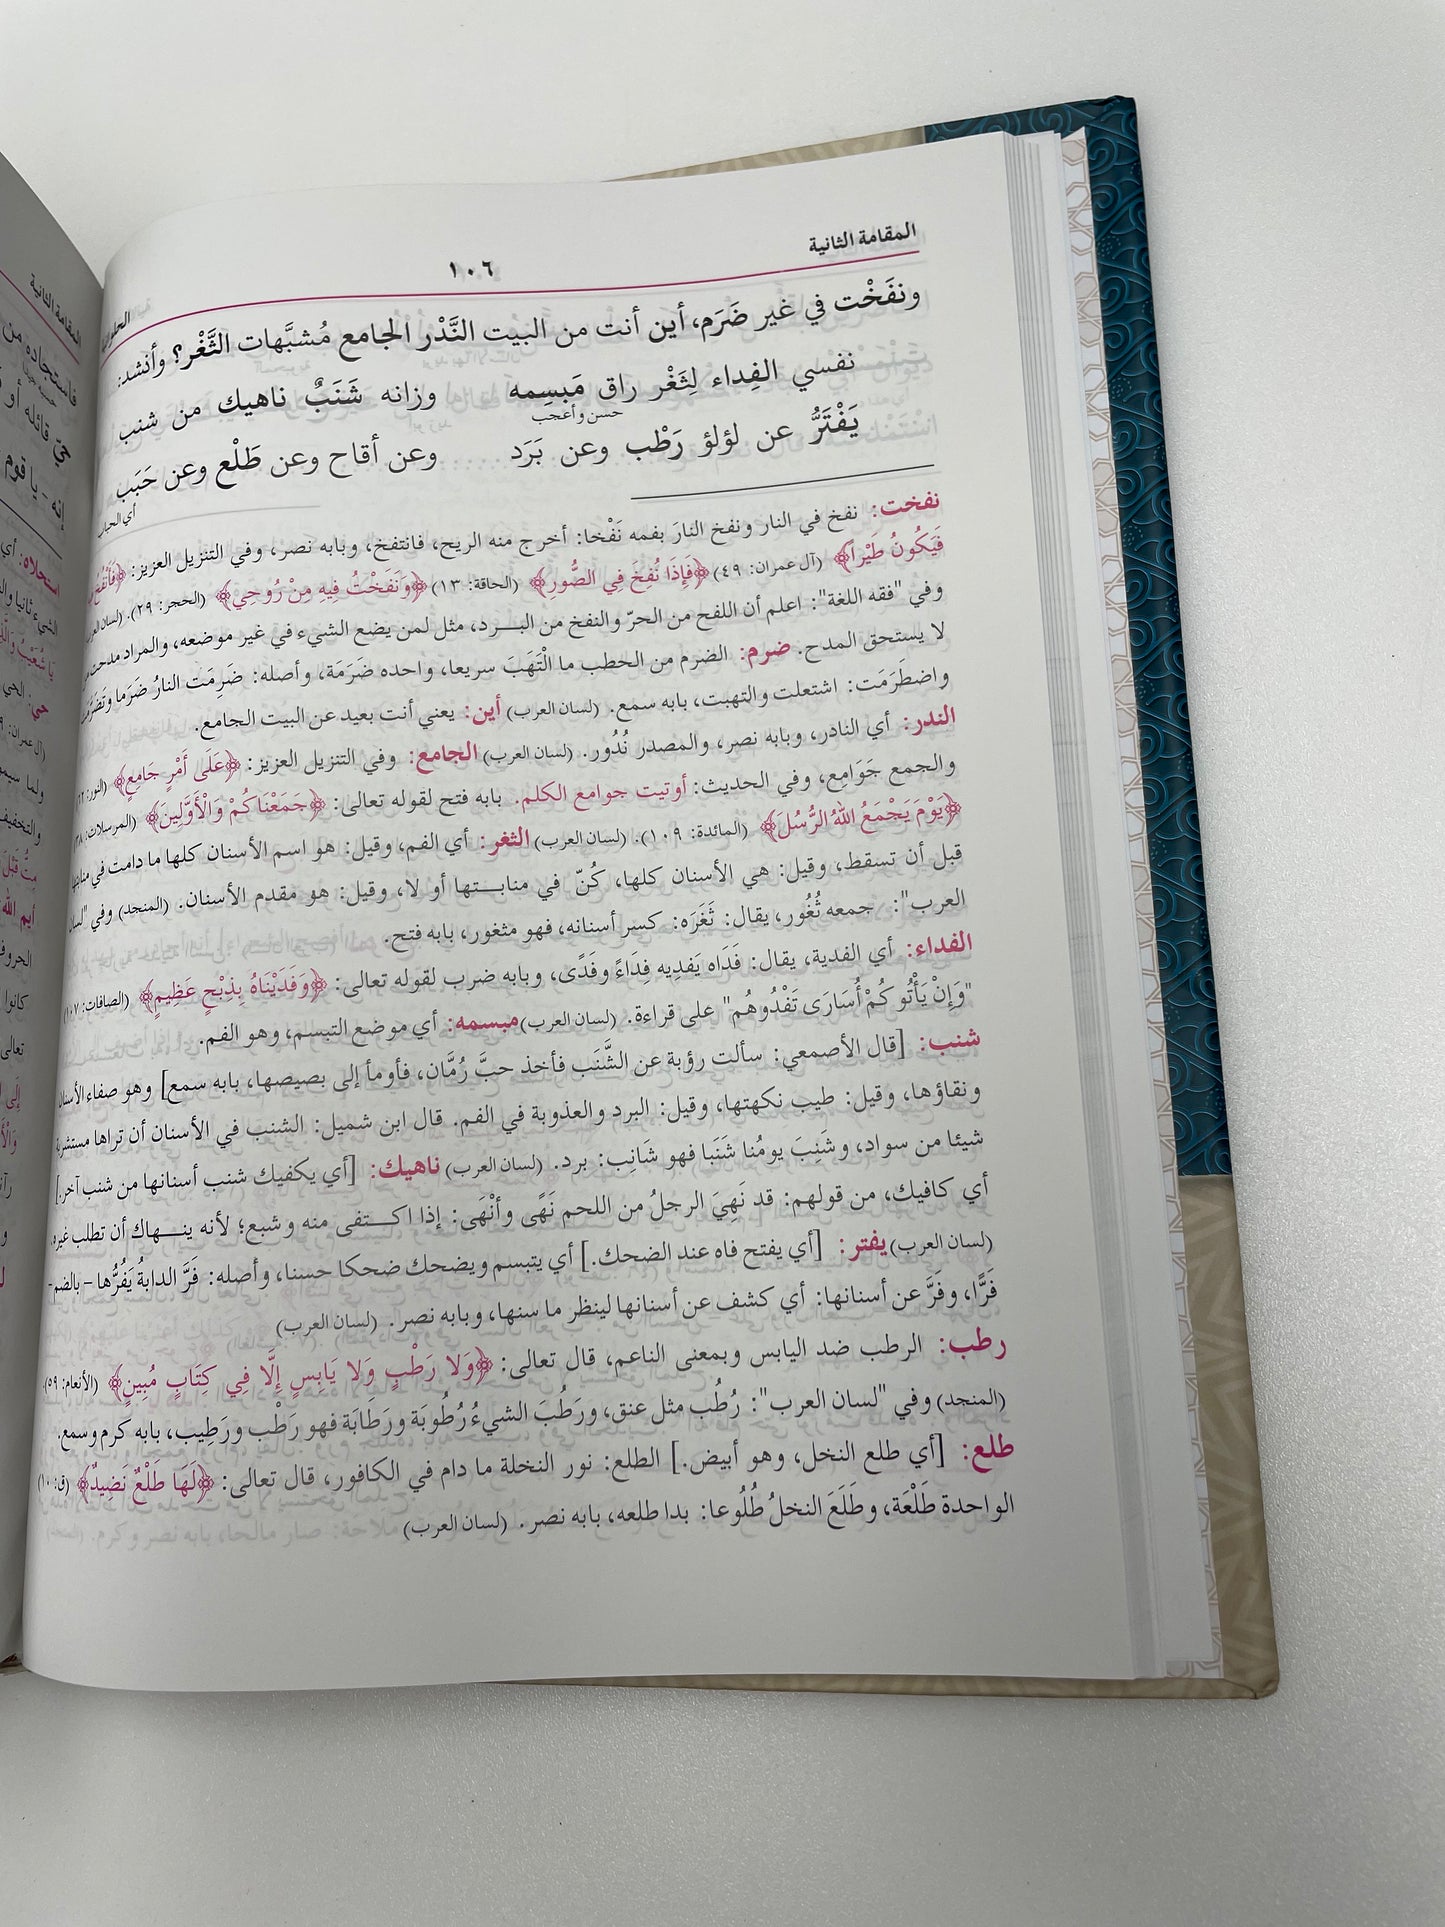 المقامة الثانية
١٠٦
ونفَخْت في غير ضَرَم، أين أنت من البيت النَّدْر الجامع مُشبَّهات الثَّغْر؟ وأنشد:
نفسي الفِداء لِثَغْر راق مَبسِمه وزانه شَنَبٌ ناهيك من شنب
حسن وأعجب
يَفْتَرُّ عن لؤلؤ رَطْب وعن بَرَد وعن أقاح وعن طَلْع وعن حَبَب
نفخت: نفخ في النار ونفخ النارَ بفمه نَفْخا: أخرج منه الريح، فانتفخ، وبابه نصر، وفي التنزيل العزيز:
فَيَكُونُ طَيْراً﴾ (آل عمران: ٤٩) ﴿فَإِذَا نُفِخَ فِي الصُّورِ﴾ (الحاقة: ١٣) ﴿وَنَفَخْتُ فِيهِ مِنْ رُوحِيْ﴾ (الحجر: ٢٩). (لسان العرب
وفي "فقه اللغة": اعلم أن اللفح من الحرّ والنفخ من البـرد، مثل لمن يضع الشيء في غير موضعه، والمراد مدحت
لا يستحق المدح. ضرم: الضرم من الحطب ما الْتَهَبَ سريعا، واحده ضَرَمَة، وأصله: ضَرِمَت النارُ ضَرَما وتَضَرَّمَت
واضطَرَمَت: اشتعلت والتهبت، بابه سمع. (لسان العرب) أين: يعني أنت بعيد عن البيت الجامع.
الندر: أي النادر، وبابه نصر، والمصدر نُدُور. (لسان العرب) الجامع: وفي التنزيل العزيز: ﴿عَلَى أَمْرٍ جَامِعٍ﴾ (النور:
والجمع جَوَامِع، وفي الحديث: أوتيت جوامع الكلم. بابه فتح لقوله تعالى: ﴿جَمَعْنَاكُمْ وَالْأَوَّلِينَ﴾ (المرسلات:
﴿يَوْمَ يَجْمَعُ اللهُ الرُّسُلَ﴾ (المائدة: ١٠٩). (لسان العرب) الثغر: أي الفم، وقيل: هو اسم الأسنان كلها ما دامت في منابتها
قبل أن تسقط، وقيل: هي الأسنان كلها، كُنّ في منابـتها أو لا، وقيل: هو مقدم الأسنان. (المنجد) وفي "لسان
العرب": جمعه ثُغُور، يقال: ثَغَرَه: كسر أسنانه، فهو مثغور، بابه فتح.
الفداء: أي الفدية، يقال: فَدَاه يَفدِيه فِدَاءً وفَدًى، وبابه ضرب لقوله تعالى: ﴿وَفَدَيْنَاهُ بِذِبْحٍ عَظِيمٍ﴾ (الصافات: ١٠٧)
"وَإِنْ يَأْتُوكُمْ أُسَارَى تَفْدُوهُم" على قراءة. (لسان العرب) مبسمه: أي موضع التبسم، وهو الفم.
شنب: [قال الأصمعي: سألت رؤبة عن الشَّنَب فأخذ حبَّ رُمَّان، فأومأ إلى بصيصها، بابه سمع] وهو صفاء الأسنان
ونقاؤها، وقيل: طيب نكهتها، وقيل: البرد والعذوبة في الفم. قال ابن شميل: الشنب في الأسنان أن تراها مستشربة
شيئا من سواد، وشَنِبَ يومُنا شَنَبا فهو شَانِب: برد. (لسان العرب) ناهيك: [أي يكفيك شنب أسنانها من شنب آخر.]
أي كافيك، من قولهم: قد نَهِيَ الرجلُ من اللحم نَهًى وأنْهَى: إذا اكـتفى منه وشبع؛ لأنه ينـهاك أن تطلب غيره.
(لسان العرب) يفتر: [أي يفتح فاه عند الضحك.] أي يتبسم ويضحك ضحكا حسنا، وأصله: فَرَّ الدابةُ يَفُرُّها – بالضم-
فَرًّا، وفَرَّ عن أسنانها: أي كشف عن أسنانها لينظر ما سنها، وبابه نصر. (لسان العرب)
رطب: الرطب ضد اليابس وبمعنى الناعم، قال تعالى: ﴿وَلا رَطْبٍ وَلا يَابِسٍ إِلَّا فِي كِتَابٍ مُبِينٍ﴾ (الأنعام: ٥٩).
(المنجد) وفي "لسان العرب": رُطُب مثل عنق، ورَطُبَ الشيءُ رُطُوبَة ورَطَابَة فهو رَطْب ورَطِيب، بابه كرم وسمع.
طلع: [أي طلع النخل، وهو أبيض.] الطلع: نور النخلة ما دام في الكافور، قال تعالى: ﴿لَهَا طَلْعٌ نَضِيدٌ﴾ (ق: ١٠)
الواحدة طَلْعَة، وطَلَعَ النخلُ طُلُوعا: بدا طلعه، بابه نصر. (لسان العرب)